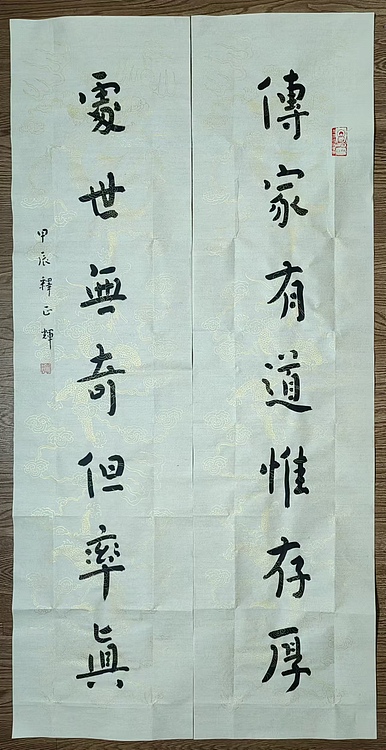 傳家有道惟存厚
處世無奇但率眞
甲辰釋正輝